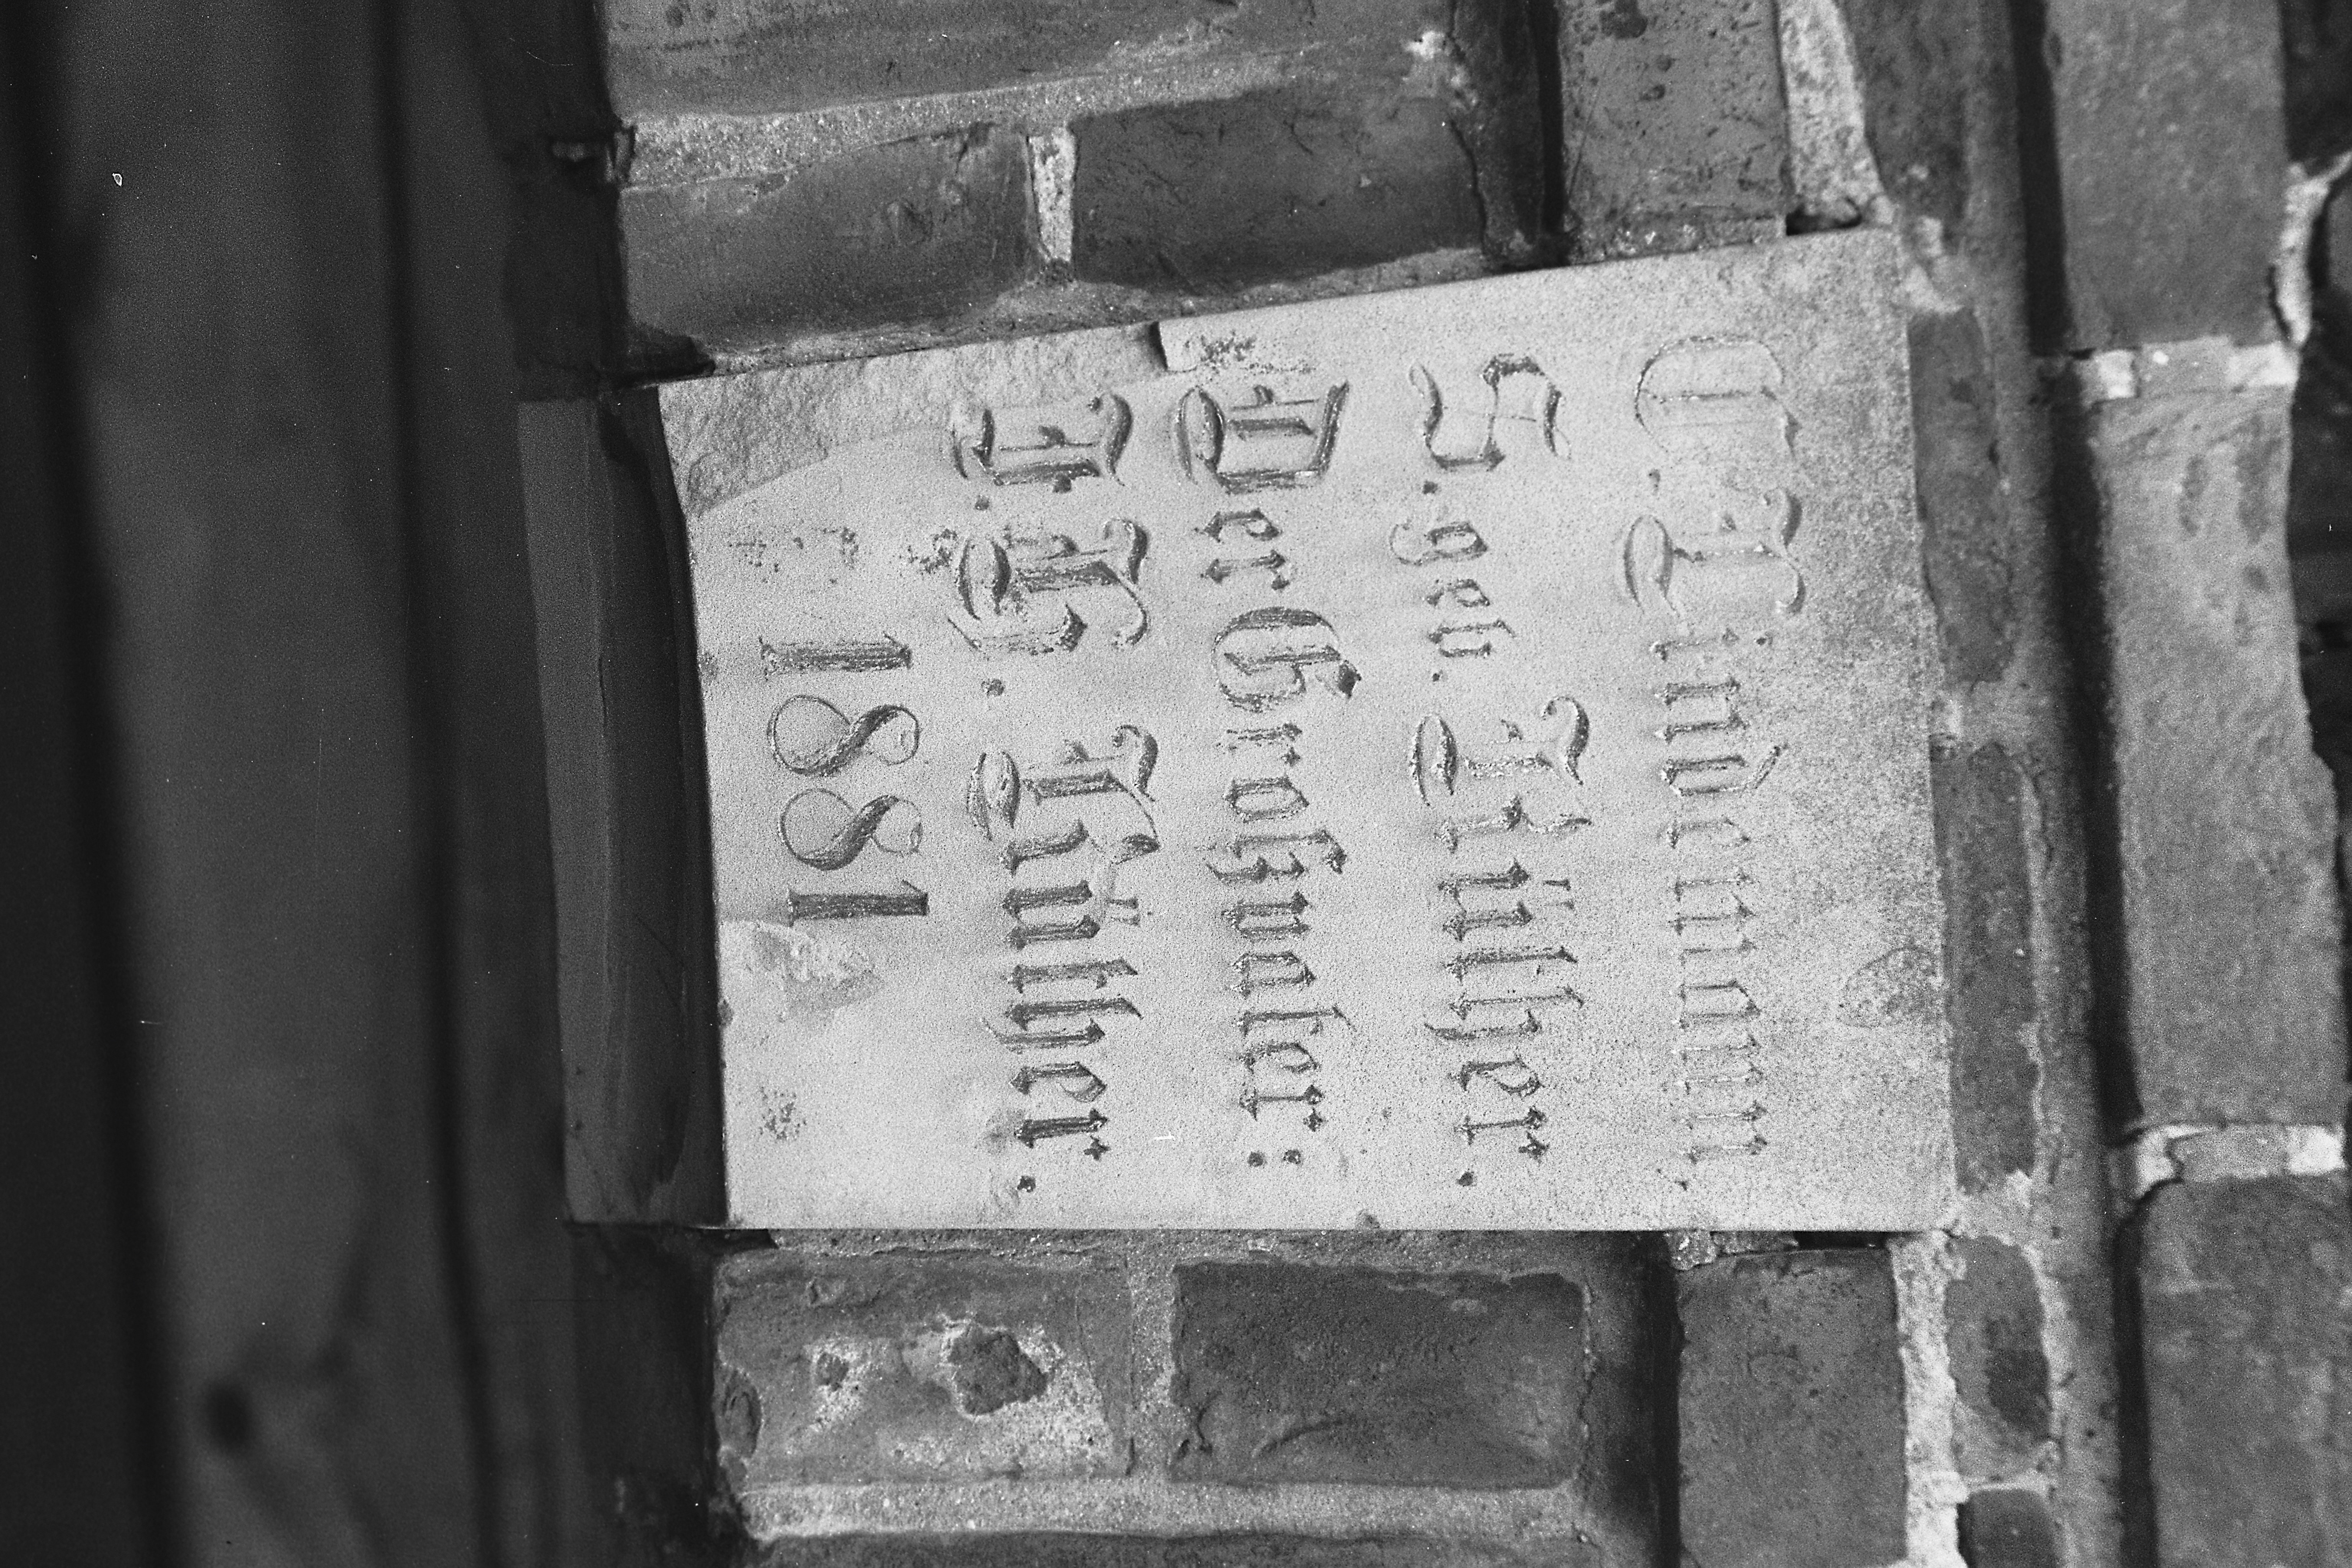 O. Lindemann
S. geb. Lülher.
Der Großvater:
Lülher.
1881